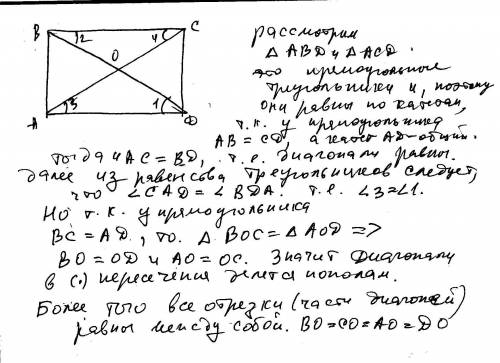 B C
2 4
O
3 1
A D
рассмотрим
△ ABD и △ ACD.
это прямоугольные
треугольники и, поэтому
они равны по катетам,
т.к. у прямоугольника
AB = CD, а катет AD-общий.
тогда и AC = BD, т.е. диагонали равны.
далее из равенсва треугольников следует,
что ∠CAD = ∠BDA. т.е. ∠3=∠1.
Но т.к. у прямоугольника
BC = AD, то. △ BOC = △ AOD =>
BO = OD и AO = OC. Значит диагонали
в (·) пересечения делятся пополам.
Более того все отрезки (части диагоней)
равны между собой. BO=CO=AO=DO